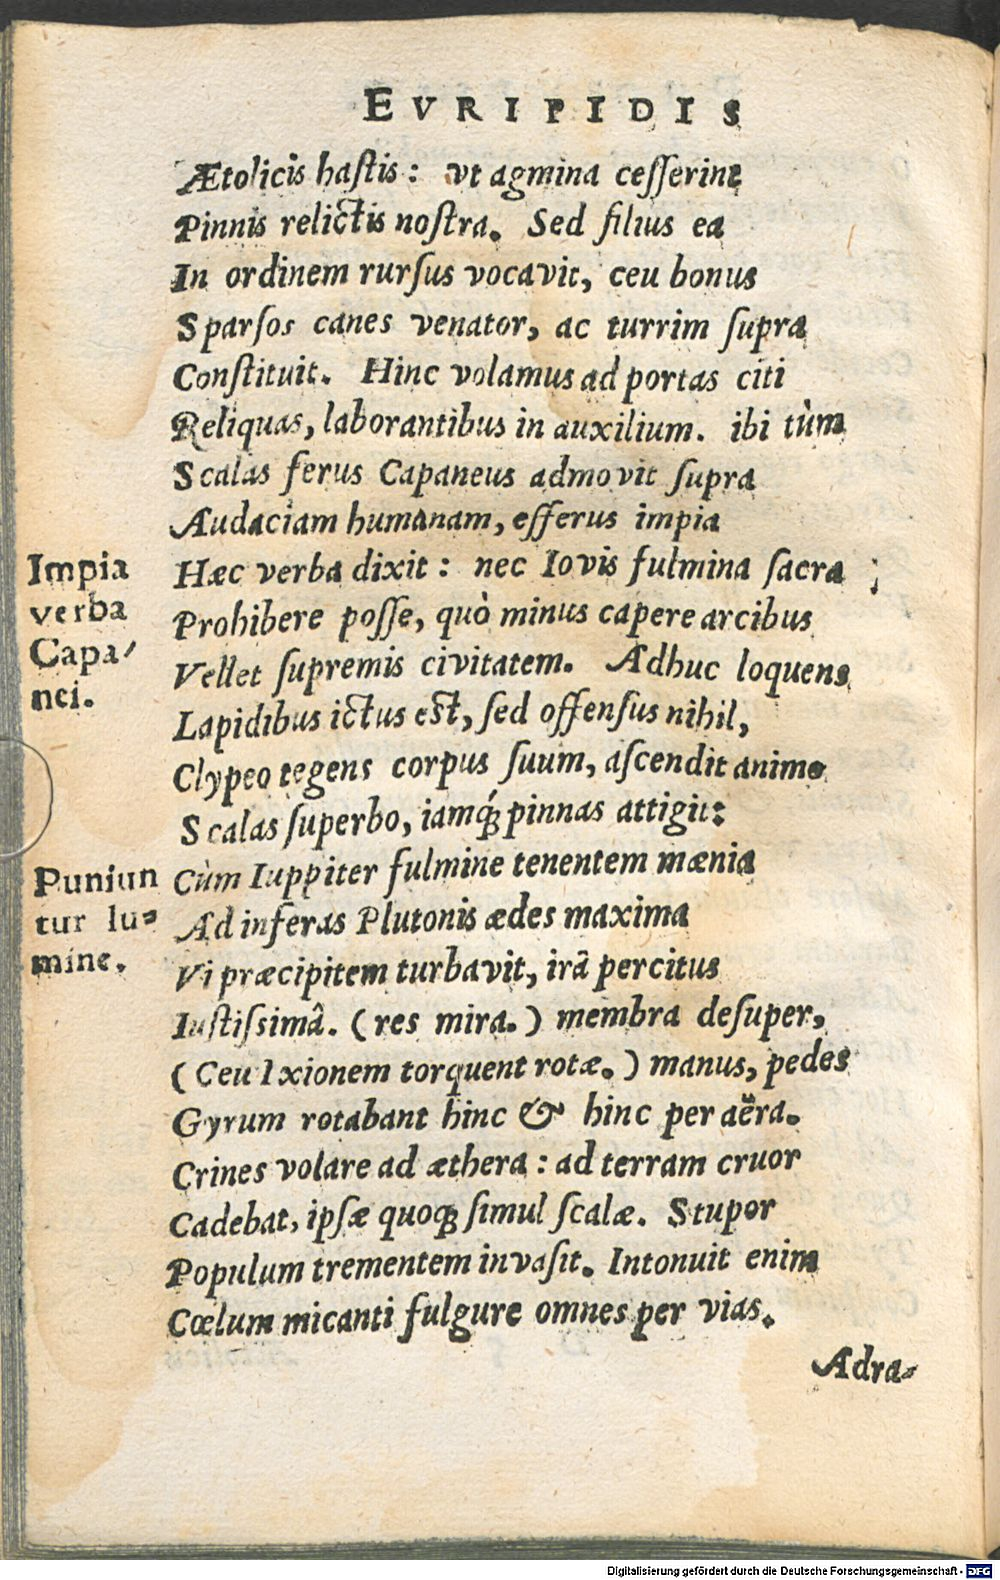 EVRIPIDIS
Ætolicis hastis: vt agmina cesserint
Pinnis relictis nostra. Sed filius ea
In ordinem rursus vocavit, ceu bonus
Sparsos canes venator, ac turrim supra
Constituit. Hinc volamus ad portas citi
Reliquas, laborantibus in auxilium. ibi tùm
Scalas ferus Capaneus admovit supra
Audaciam humanam, efferus impia
Hæc verba dixit: nec Iovis fulmina sacra
Prohibere posse, quò minus capere arcibus
Vellet supremis civitatem. Adhuc loquens
Lapidibus ictus est, sed offensus nihil,
Clypeo tegens corpus suum, ascendit animo
Scalas superbo, iamq́; pinnas attigit:
Cùm Iuppiter fulmine tenentem mænia
Ad inferas Plutonis ædes maxima
Vi præcipitem turbavit, irâ percitus
Iustissimâ. (res mira.) membra desuper,
(Ceu Ixionem torquent rotæ.) manus, pedes
Gyrum rotabant hinc & hinc per aëra.
Crines volare ad æthera: ad terram cruor
Cadebat, ipsæ quoq; simul scalæ. Stupor
Populum trementem invasit. Intonuit enim
Cœlum micanti fulgure omnes per vias.
Adra-
Impia
verba
Capa-
nei.
Puniun
tur lu-
mine.
Digitalisierung gefördert durch die Deutsche Forschungsgemeinschaft - DFG